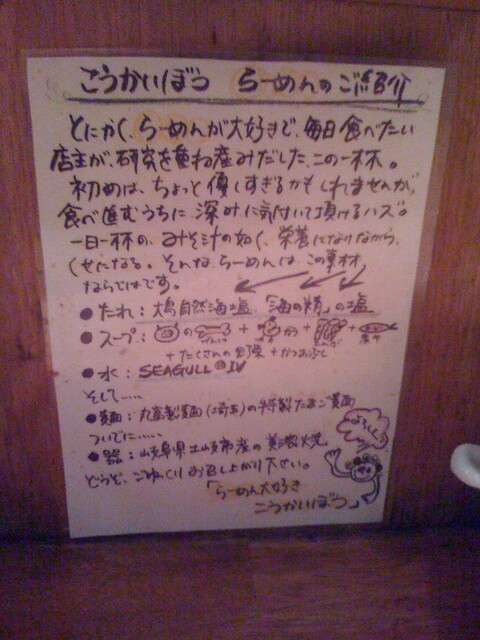 こうかいぼう らーめんのご紹介
とにかく、らーめんが大好きで、毎日食べたい
店主が、研究を重ね産みだした、この一杯。
初めは、ちょっと優しすぎるかもしれませんが、
食べ進むうちに、深みに気付いて頂けるハズ。
一日一杯の、みそ汁の如く、栄養になりながら、
くせになる。そんな、らーめんは、この素材
ならではです。
●たれ：大島自然海塩「海の精」の塩
●スープ：の げんこつ + がら + +
+たくさんの野菜+かつおぶし
●水：SEAGULL IV
そして……
●麺：丸富製麺(埼玉)の特製たまご麺
ついでに……
●器：岐阜県土岐市産の美濃焼
どうぞ、ごゆっくりお召し上がり下さい。
「らーめん大好き
こうかいぼう」